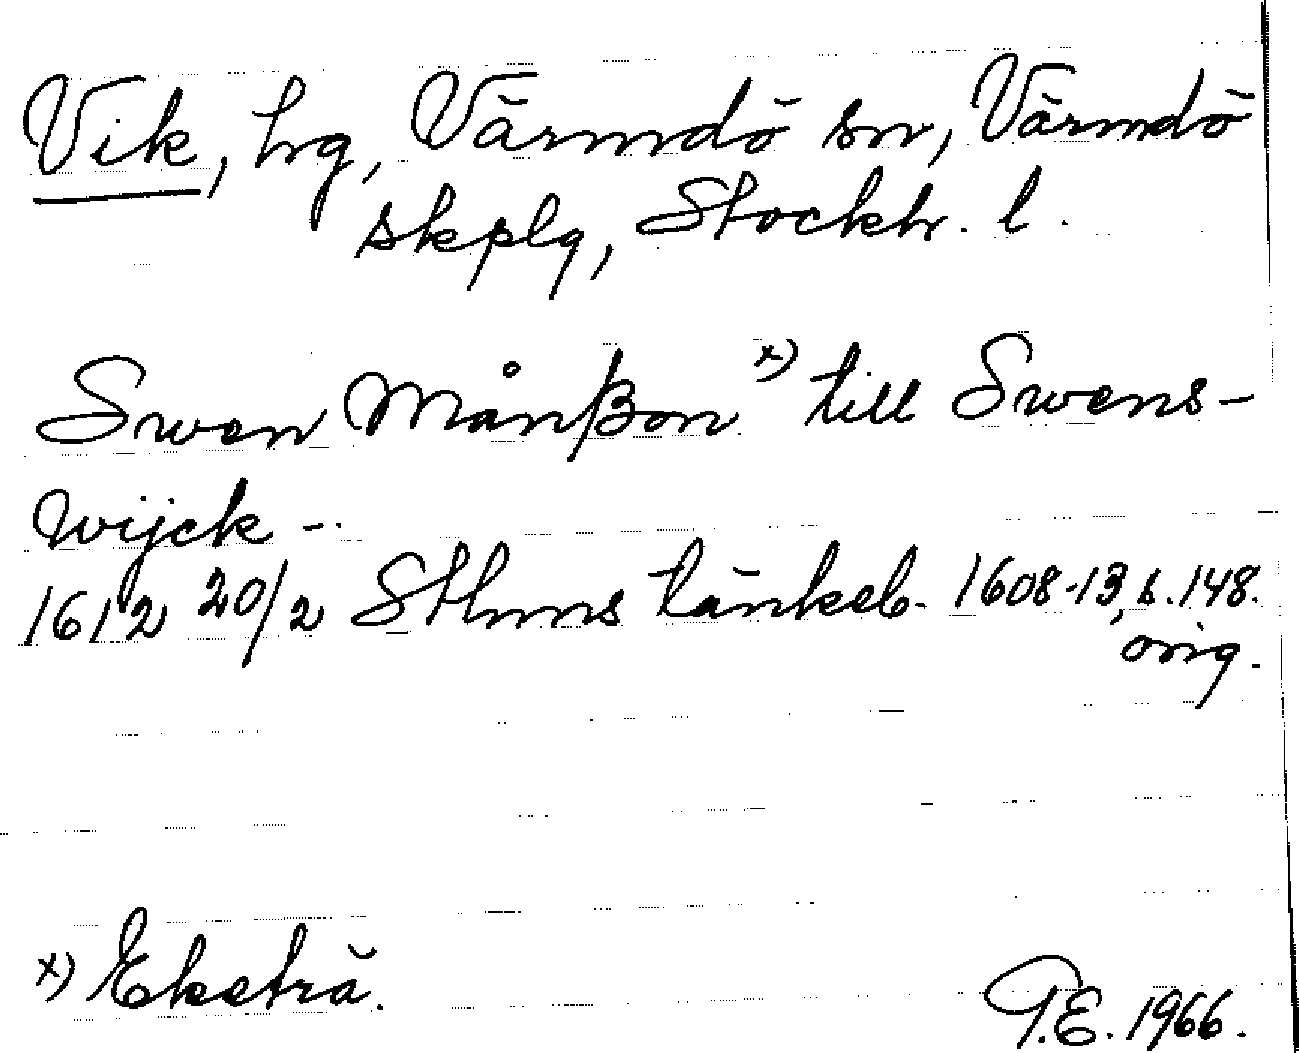 Vik, hg, Värmdö sn, Värmdö
skplg, Stockh. l.
Swen Månßon x) till Swens-
wijck --
1612 20/2 Sthms tänkeb. 1608-13, s. 148.
orig.
x) Eketrä.
G.E. 1966.